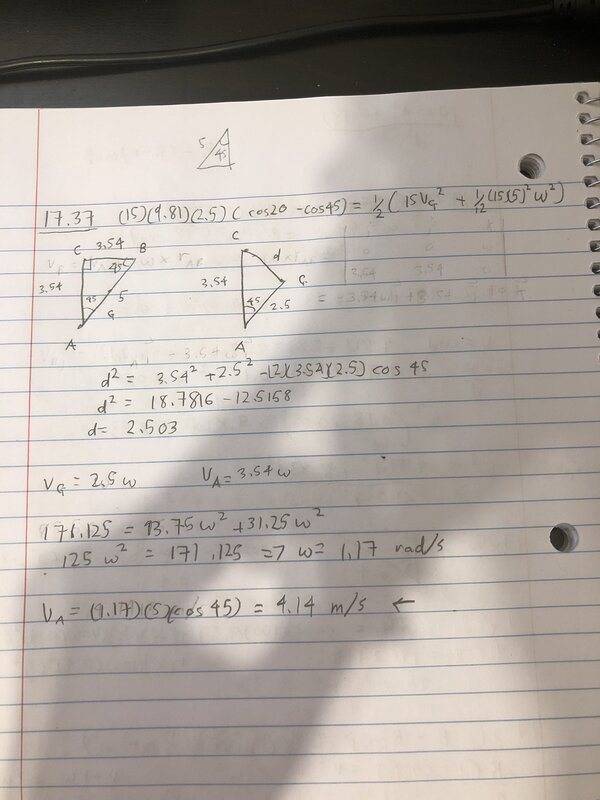 5
45
17.37 (15)(9.81)(2.5)(cos20 - cos45) = 1/2 (15 V_G² + 1/12 (15)(5)² ω²)
C 3.54 B
45
3.54
45 5
G
A
C
d
3.54 G
45 2.5
A
d² = 3.54² + 2.5² - (2)(3.54)(2.5) cos 45
d² = 18.7816 - 12.5158
d = 2.503
V_G = 2.5 ω V_A = 3.54 ω
171.125 = 93.75 ω² + 31.25 ω²
125 ω² = 171.125 => ω = 1.17 rad/s
V_A = (1.17)(5)(cos 45) = 4.14 m/s ←